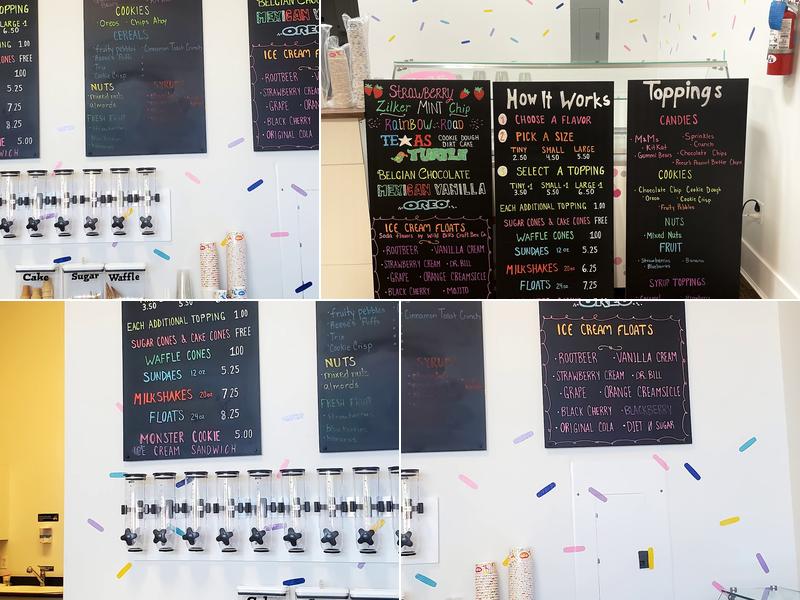 TOPPING
LARGE +1
6.50
1.00
FREE
1.00
5.25
7.25
8.25
5.00
COOKIES
Oreos · Chips Ahoy
CEREALS
fruity pebbles · Cinnamon Toast Crunch
Reese's Puffs
Trix
Cookie Crisp
NUTS
mixed nuts
almonds
SYRUP
FRESH FRUIT
BELGIAN CHOCOLATE
MEXICAN
OREO
ICE CREAM
· ROOTBEER
STRAWBERRY
· GRAPE
BLACK CHERRY
ORIGINAL COLA
Cake
Sugar
Waffle
STRAWBERRY
Zilker MINT Chip
RAINBOW ROAD
TEXAS COOKIE DOUGH
DIRT CAKE
TURTLE
BELGIAN CHOCOLATE
MEXICAN VANILLA
OREO
ICE CREAM FLOATS
Soda flavors by Wild Bill's Craft Bev Co
· ROOTBEER · VANILLA CREAM
· STRAWBERRY CREAM · DR. BILL
· GRAPE · ORANGE CREAMSICLE
· BLACK CHERRY · MOJITO
How It Works
1 CHOOSE A FLAVOR
2 PICK A SIZE
TINY SMALL LARGE
2.50 4.50 5.50
SELECT A TOPPING
TINY +1 SMALL +1 LARGE +1
3.50 5.50 6.50
EACH ADDITIONAL TOPPING 1.00
SUGAR CONES & CAKE CONES FREE
WAFFLE CONES 1.00
SUNDAES 12oz 5.25
MILKSHAKES 20oz 6.25
FLOATS 24oz 7.25
Toppings
CANDIES
· M&Ms · Sprinkles
· KitKat · Crunch
· Gummi Bears · Chocolate Chips
· Reese's Peanut Butter Cups
COOKIES
· Chocolate Chip Cookie Dough
· Oreo · Cookie Crisp
· Fruity Pebbles
NUTS
· Mixed Nuts
FRUIT
· Strawberries · Banana
· Blueberries
SYRUP TOPPINGS
3.50 5.50
EACH ADDITIONAL TOPPING 1.00
SUGAR CONES & CAKE CONES FREE
WAFFLE CONES 1.00
SUNDAES 12oz 5.25
MILKSHAKES 20oz 7.25
FLOATS 24oz 8.25
MONSTER COOKIE 5.00
ICE CREAM SANDWICH
· fruity pebbles
· Reese's Puffs
· Trix
· Cookie Crisp
NUTS
· mixed nuts
almonds
FRESH FRUIT
· strawberries
blueberries
bananas
Cinnamon Toast Crunch
SYRUP
OREO
ICE CREAM FLOATS
· ROOTBEER · VANILLA CREAM
· STRAWBERRY CREAM · DR. BILL
· GRAPE · ORANGE CREAMSICLE
· BLACK CHERRY · BLACKBERRY
· ORIGINAL COLA · DIET 0 SUGAR